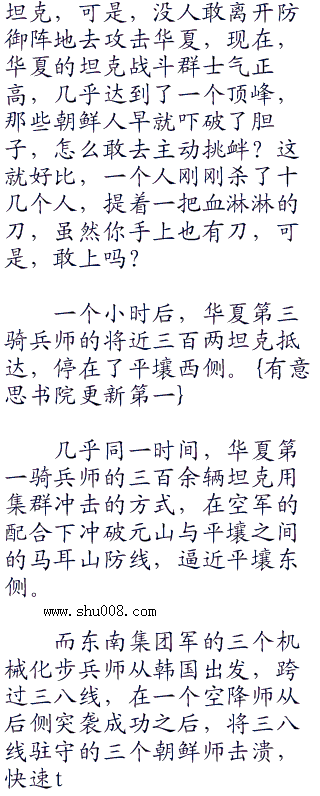 坦克，可是，没人敢离开防
御阵地去攻击华夏，现在，
华夏的坦克战斗群士气正
高，几乎达到了一个顶峰，
那些朝鲜人早就吓破了胆
子，怎么敢去主动挑衅？这
就好比，一个人刚刚杀了十
几个人，提着一把血淋淋的
刀，虽然你手上也有刀，可
是，敢上吗？
一个小时后，华夏第三
骑兵师的将近三百两坦克抵
达，停在了平壤西侧。{有意
思书院更新第一}
几乎同一时间，华夏第
一骑兵师的三百余辆坦克用
集群冲击的方式，在空军的
配合下冲破元山与平壤之间
的马耳山防线，逼近平壤东
侧。
www.shu008.com
而东南集团军的三个机
械化步兵师从韩国出发，跨
过三八线，在一个空降师从
后侧突袭成功之后，将三八
线驻守的三个朝鲜师击溃，
快速t